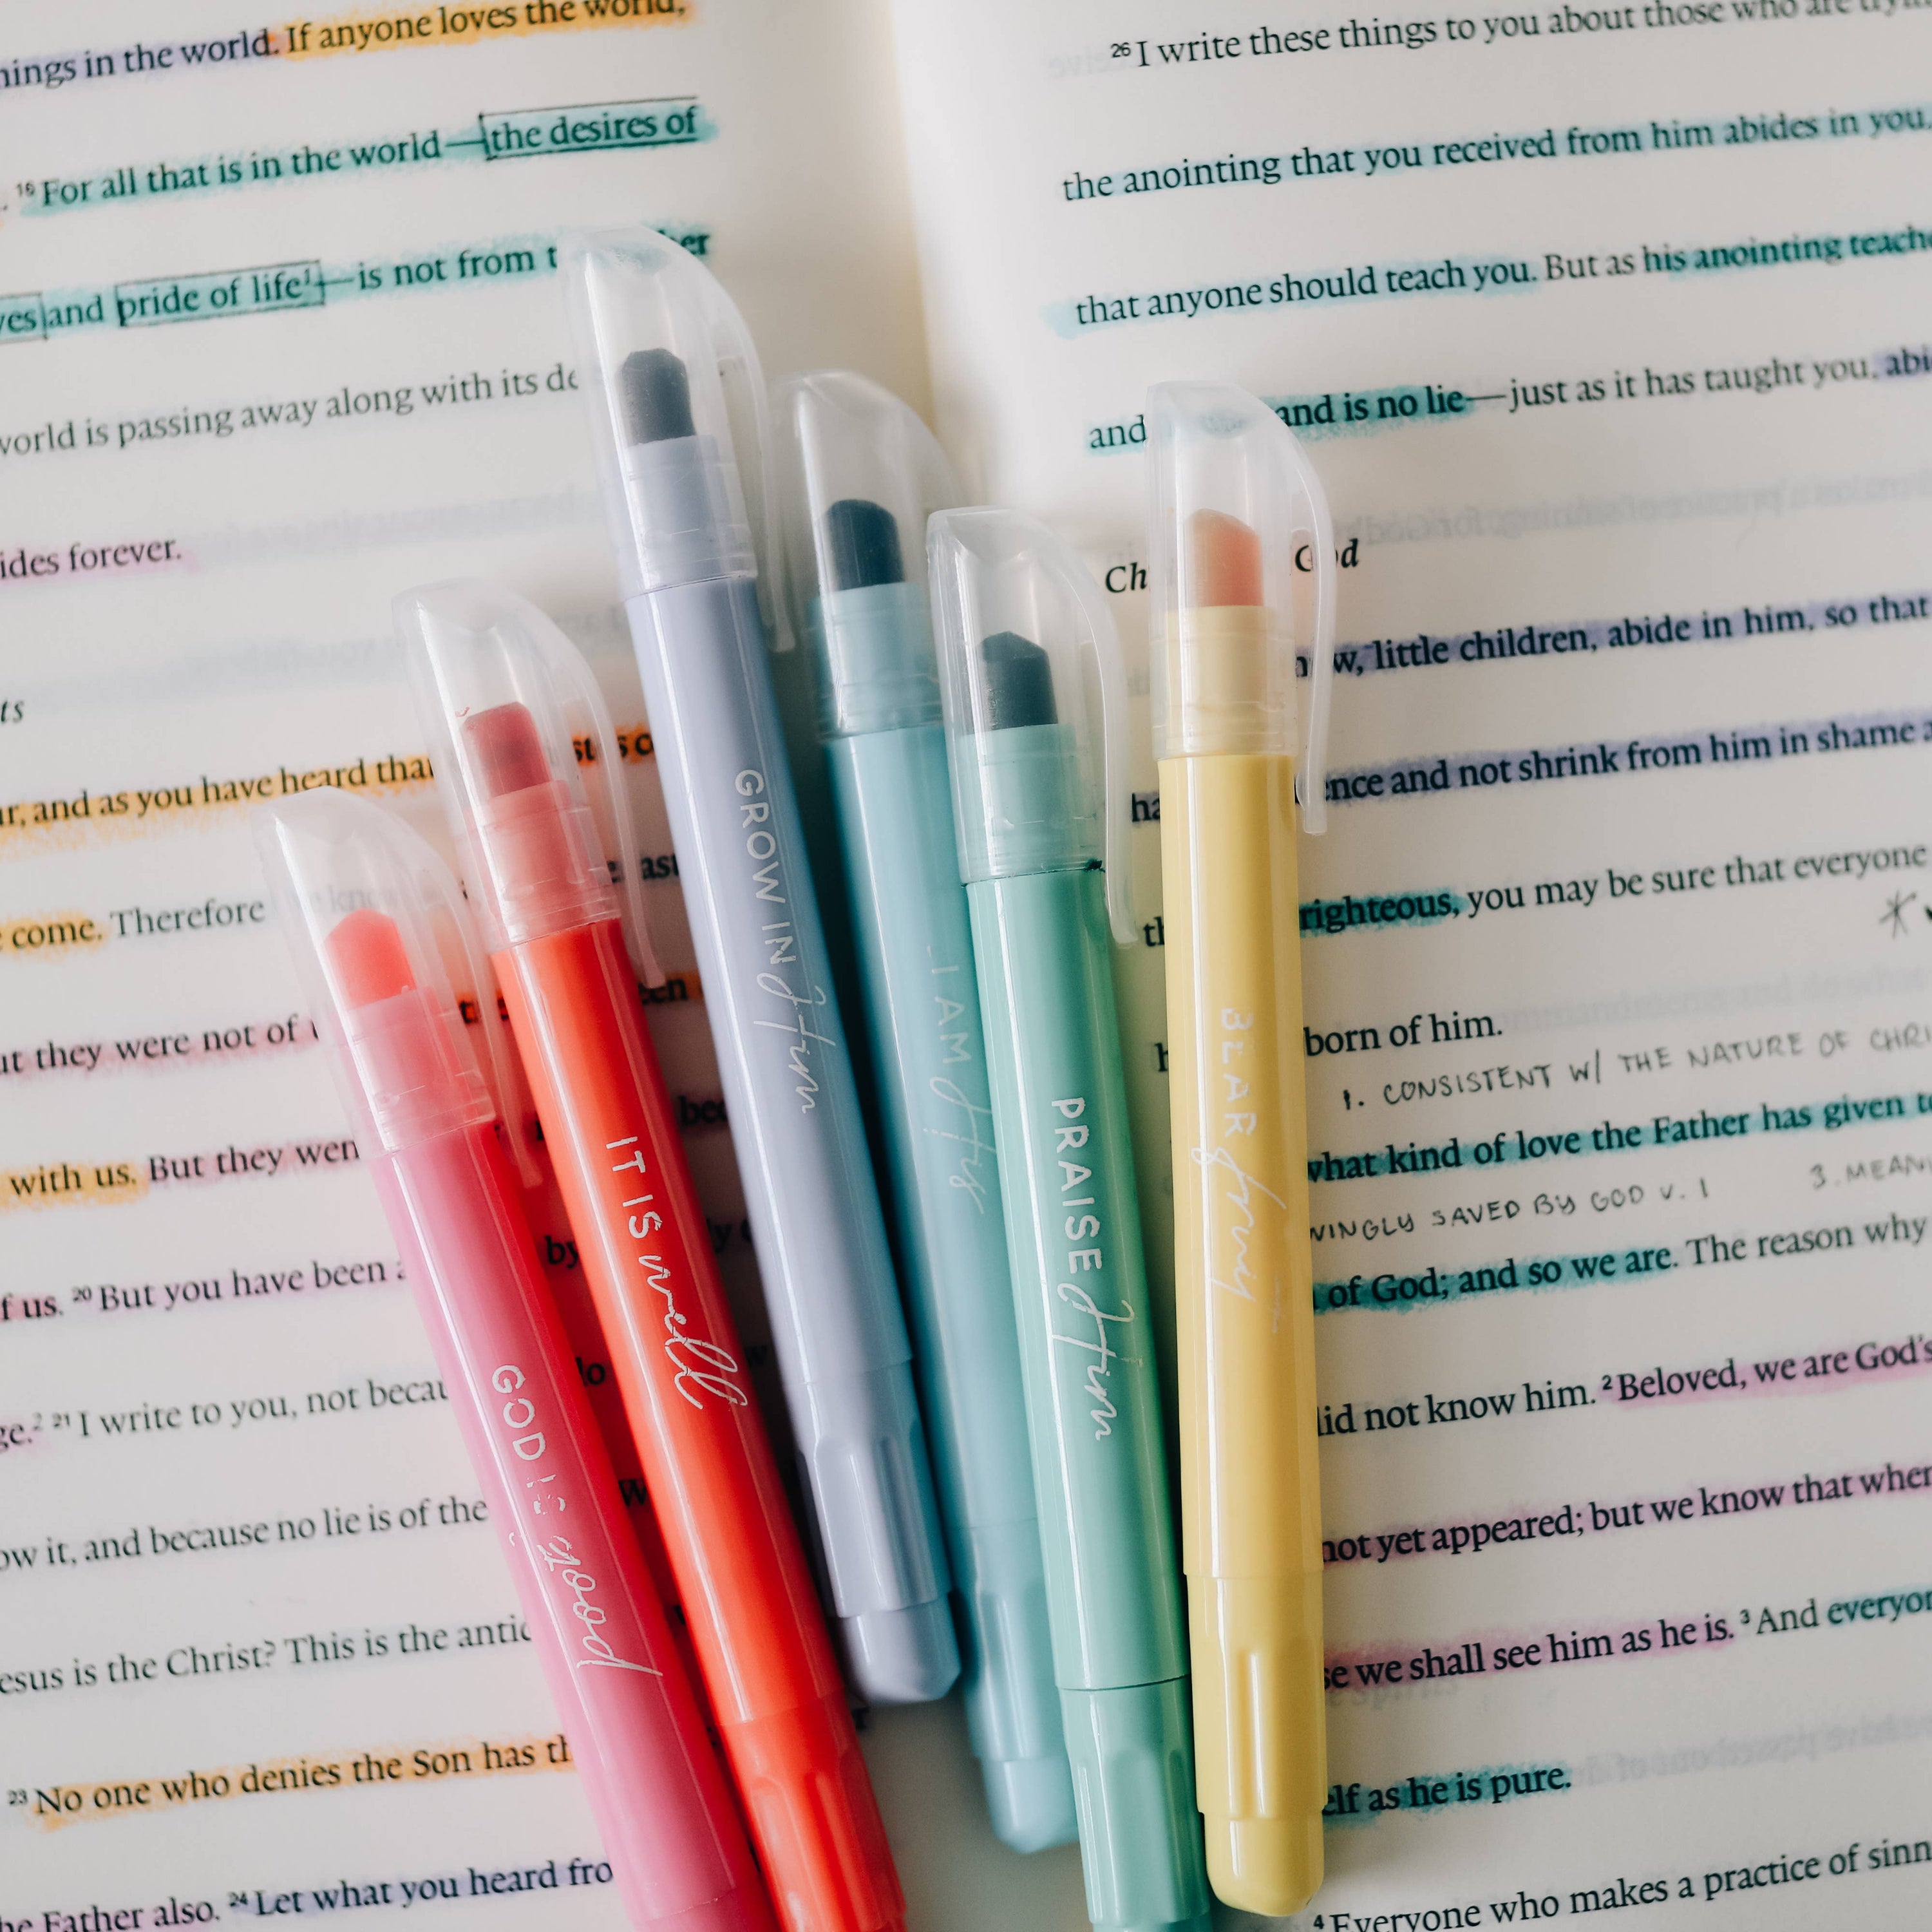 things in the world. If anyone loves the world,
16 For all that is in the world—the desires of
and pride of life1—is not from
world is passing away along with its
forever.
and as you have heard that
come. Therefore
they were not of
with us. But they
of us. 20 But you have been
2 21 I write to you, not
it, and because no lie is of the
Jesus is the Christ? This is the
23 No one who denies the Son has
Father also. 24 Let what you heard
26 I write these things to you about those who are
the anointing that you received from him abides in you,
that anyone should teach you. But as his anointing
and and is no lie—just as it has taught you,
God
little children, abide in him, so that
and not shrink from him in shame
righteous, you may be sure that everyone
born of him.
1. CONSISTENT W/ THE NATURE OF
what kind of love the Father has given
SAVED BY GOD V. 1 3.
of God; and so we are. The reason why
did not know him. 2 Beloved, we are God's
not yet appeared; but we know that
we shall see him as he is. 3 And
as he is pure.
4 Everyone who makes a practice of
GOD IS good
IT IS well
GROW IN Him
I AM His
PRAISE Him
BEAR fruit